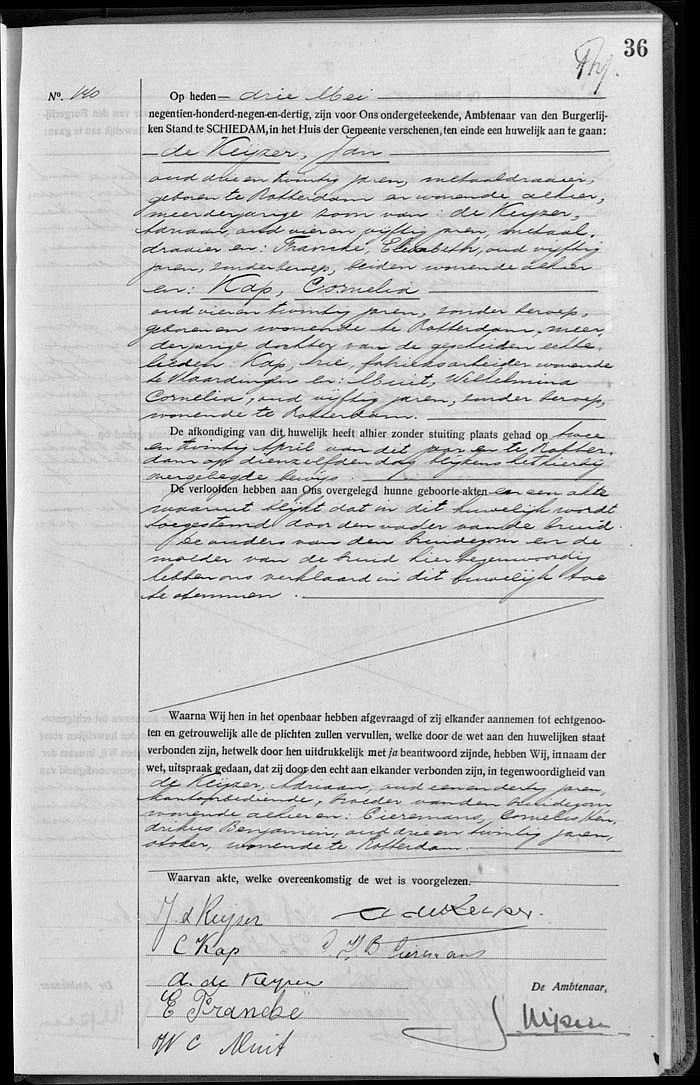 36
Nº. 140
Op heden – drie Mei
negentien-honderd-negen-en-dertig, zijn voor Ons ondergeteekende, Ambtenaar van den Burgerlij-
ken Stand te SCHIEDAM, in het Huis der Gemeente verschenen, ten einde een huwelijk aan te gaan:
de Keijzer, Jan
oud drie en twintig jaren, metaaldraaier,
geboren te Rotterdam en wonende alhier,
meerderjarige zoon van: de Keijzer,
Adriaan, oud vier en vijftig jaren, metaal,
draaier en: Francke, Elizabeth, oud vijftig
jaren, zonder beroep, beiden wonende alhier
en: Kap, Cornelia
oud vier en twintig jaren, zonder beroep,
geboren en wonende te Rotterdam, meer,
derjarige dochter van de gescheiden echte,
lieden: Kap, Arie, fabrieksarbeider wonende
te Vlaardingen en: Muit, Wilhelmina
Cornelia, oud vijftig jaren, zonder beroep,
wonende te Rotterdam.
De afkondiging van dit huwelijk heeft alhier zonder stuiting plaats gehad op twee
en twintig April van dit jaar en te Rotter,
dam op dienzelfden dag blijkens het hierbij
overgelegde bewijs.
De verloofden hebben aan Ons overgelegd hunne geboorte-akten en een akte
waaruit blijkt dat in dit huwelijk wordt
toegestemd door den vader van de bruid.
De ouders van den bruidegom en de
moeder van de bruid hier tegenwoordig
hebben ons verklaard in dit huwelijk toe
te stemmen.
Waarna Wij hen in het openbaar hebben afgevraagd of zij elkander aannemen tot echtgenoo-
ten en getrouwelijk alle de plichten zullen vervullen, welke door de wet aan den huwelijken staat
verbonden zijn, hetwelk door hen uitdrukkelijk met ja beantwoord zijnde, hebben Wij, in naam der
wet, uitspraak gedaan, dat zij door den echt aan elkander verbonden zijn, in tegenwoordigheid van
de Keijzer, Adriaan, oud een en dertig jaren,
kantoorbediende, broeder van den bruidegom
wonende alhier en: Cieremans, Cornelis Hen,
drikus Benjamin, oud drie en twintig jaren,
stoker, wonende te Rotterdam.
Waarvan akte, welke overeenkomstig de wet is voorgelezen.
J. d Keijser
A de Keijzer.
C Kap
H B Cieremans
A. de Keijzer
De Ambtenaar,
E Francke
W C Muit